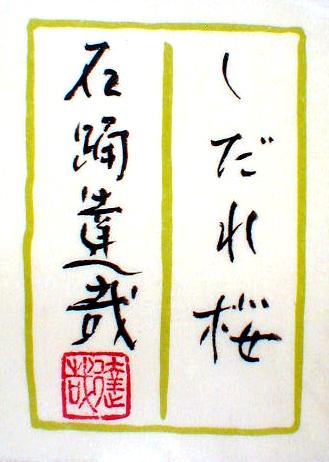 しだれ桜
石踊達哉
達哉